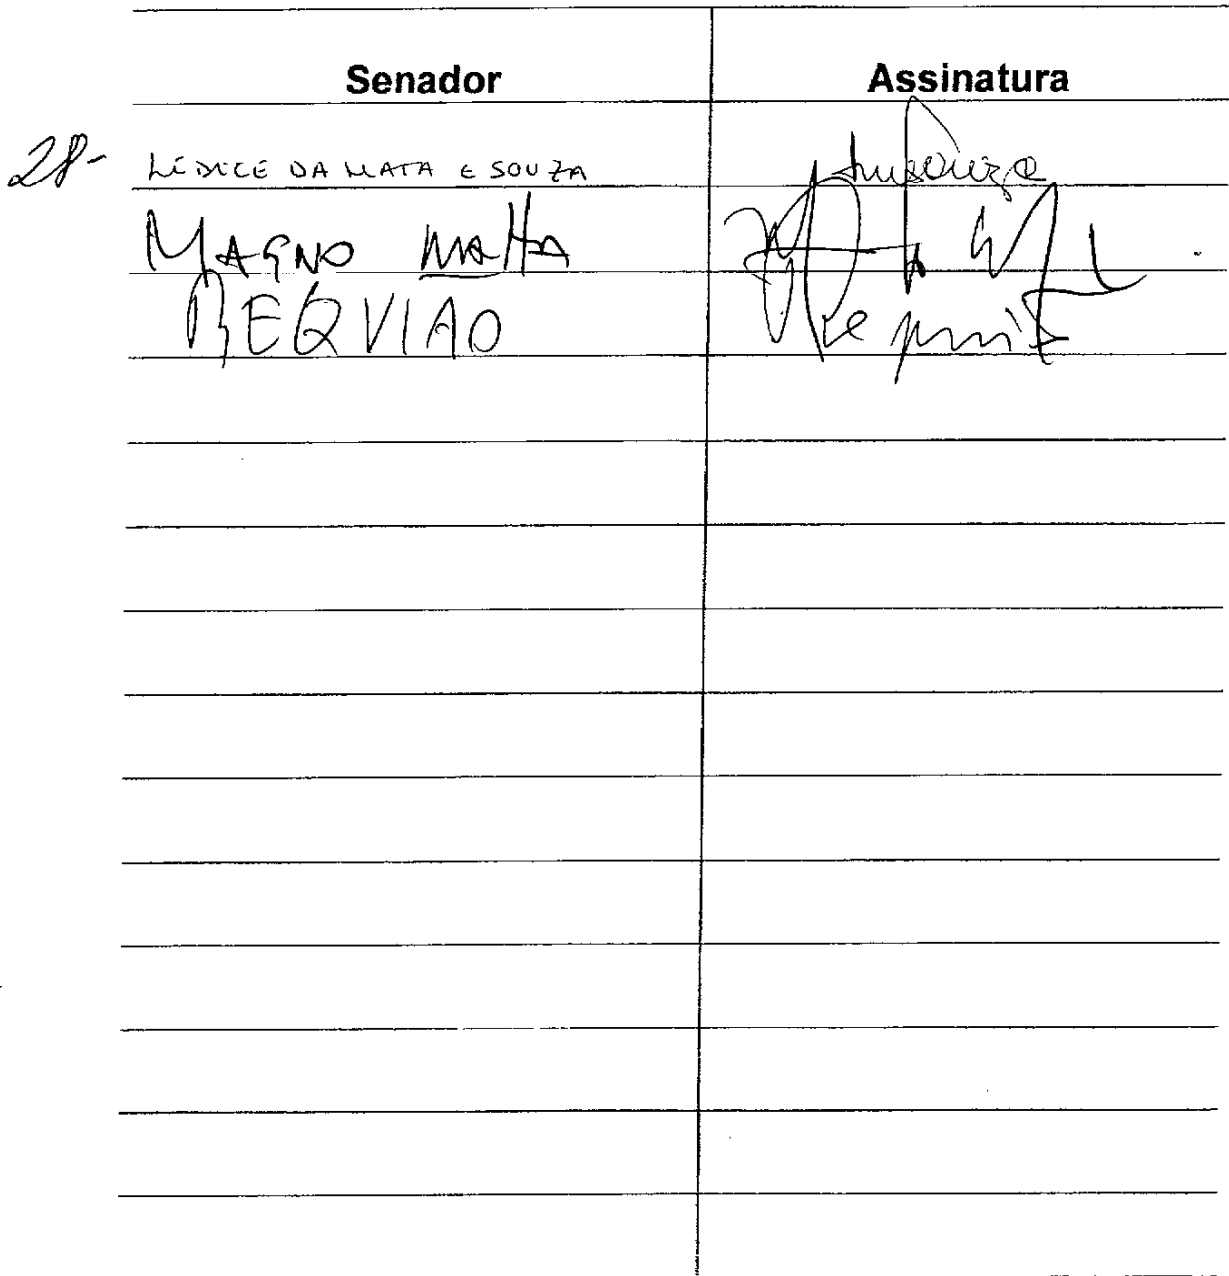 Senador Assinatura
28- LÍDICE DA MATA E SOUZA
MAGNO MALTA
REQUIAO Requião